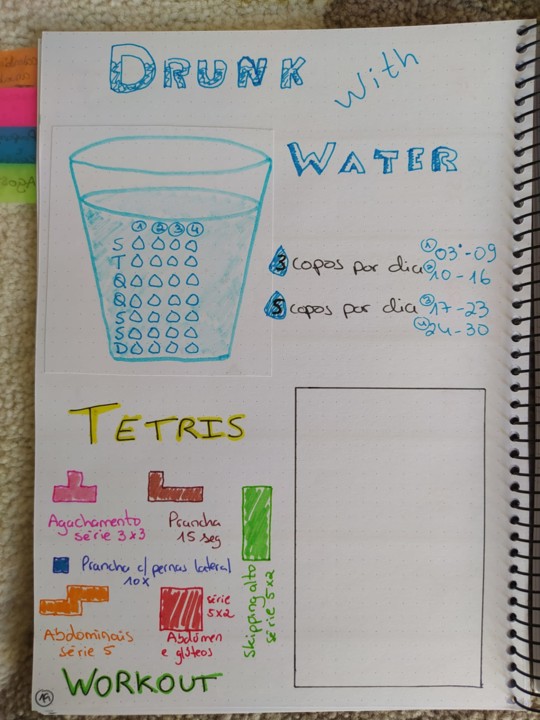 DRUNK with
WATER
1 2 3 4
S
T
Q
Q
S
S
D
3 copos por dia 1 03-09
2 10-16
5 copos por dia 3 17-23
4 24-30
TETRIS
Agachamento
série 3x3
Prancha
15 seg
Prancha c/ pernas lateral
10x
Abdominais
série 5
série
5x2
Abdómen
e glúteos
Skipping alto
série 5x2
WORKOUT